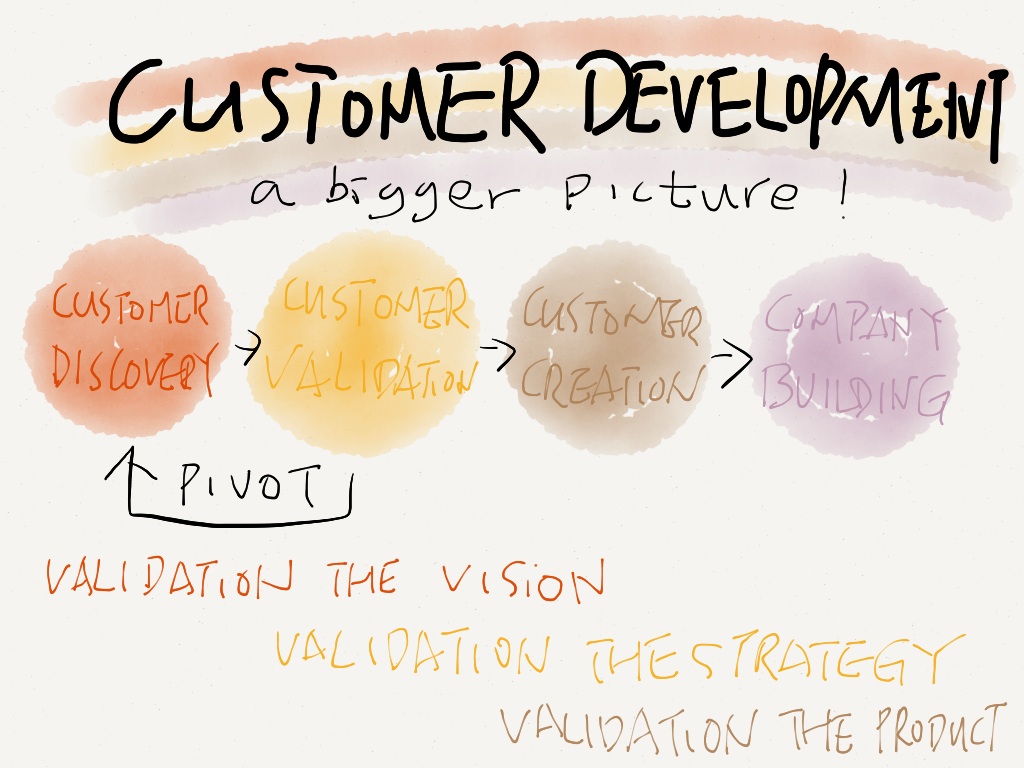 CUSTOMER DEVELOPMENT
a bigger picture!
CUSTOMER
DISCOVERY
CUSTOMER
VALIDATION
CUSTOMER
CREATION
COMPANY
BUILDING
PIVOT
VALIDATION THE VISION
VALIDATION THE STRATEGY
VALIDATION THE PRODUCT